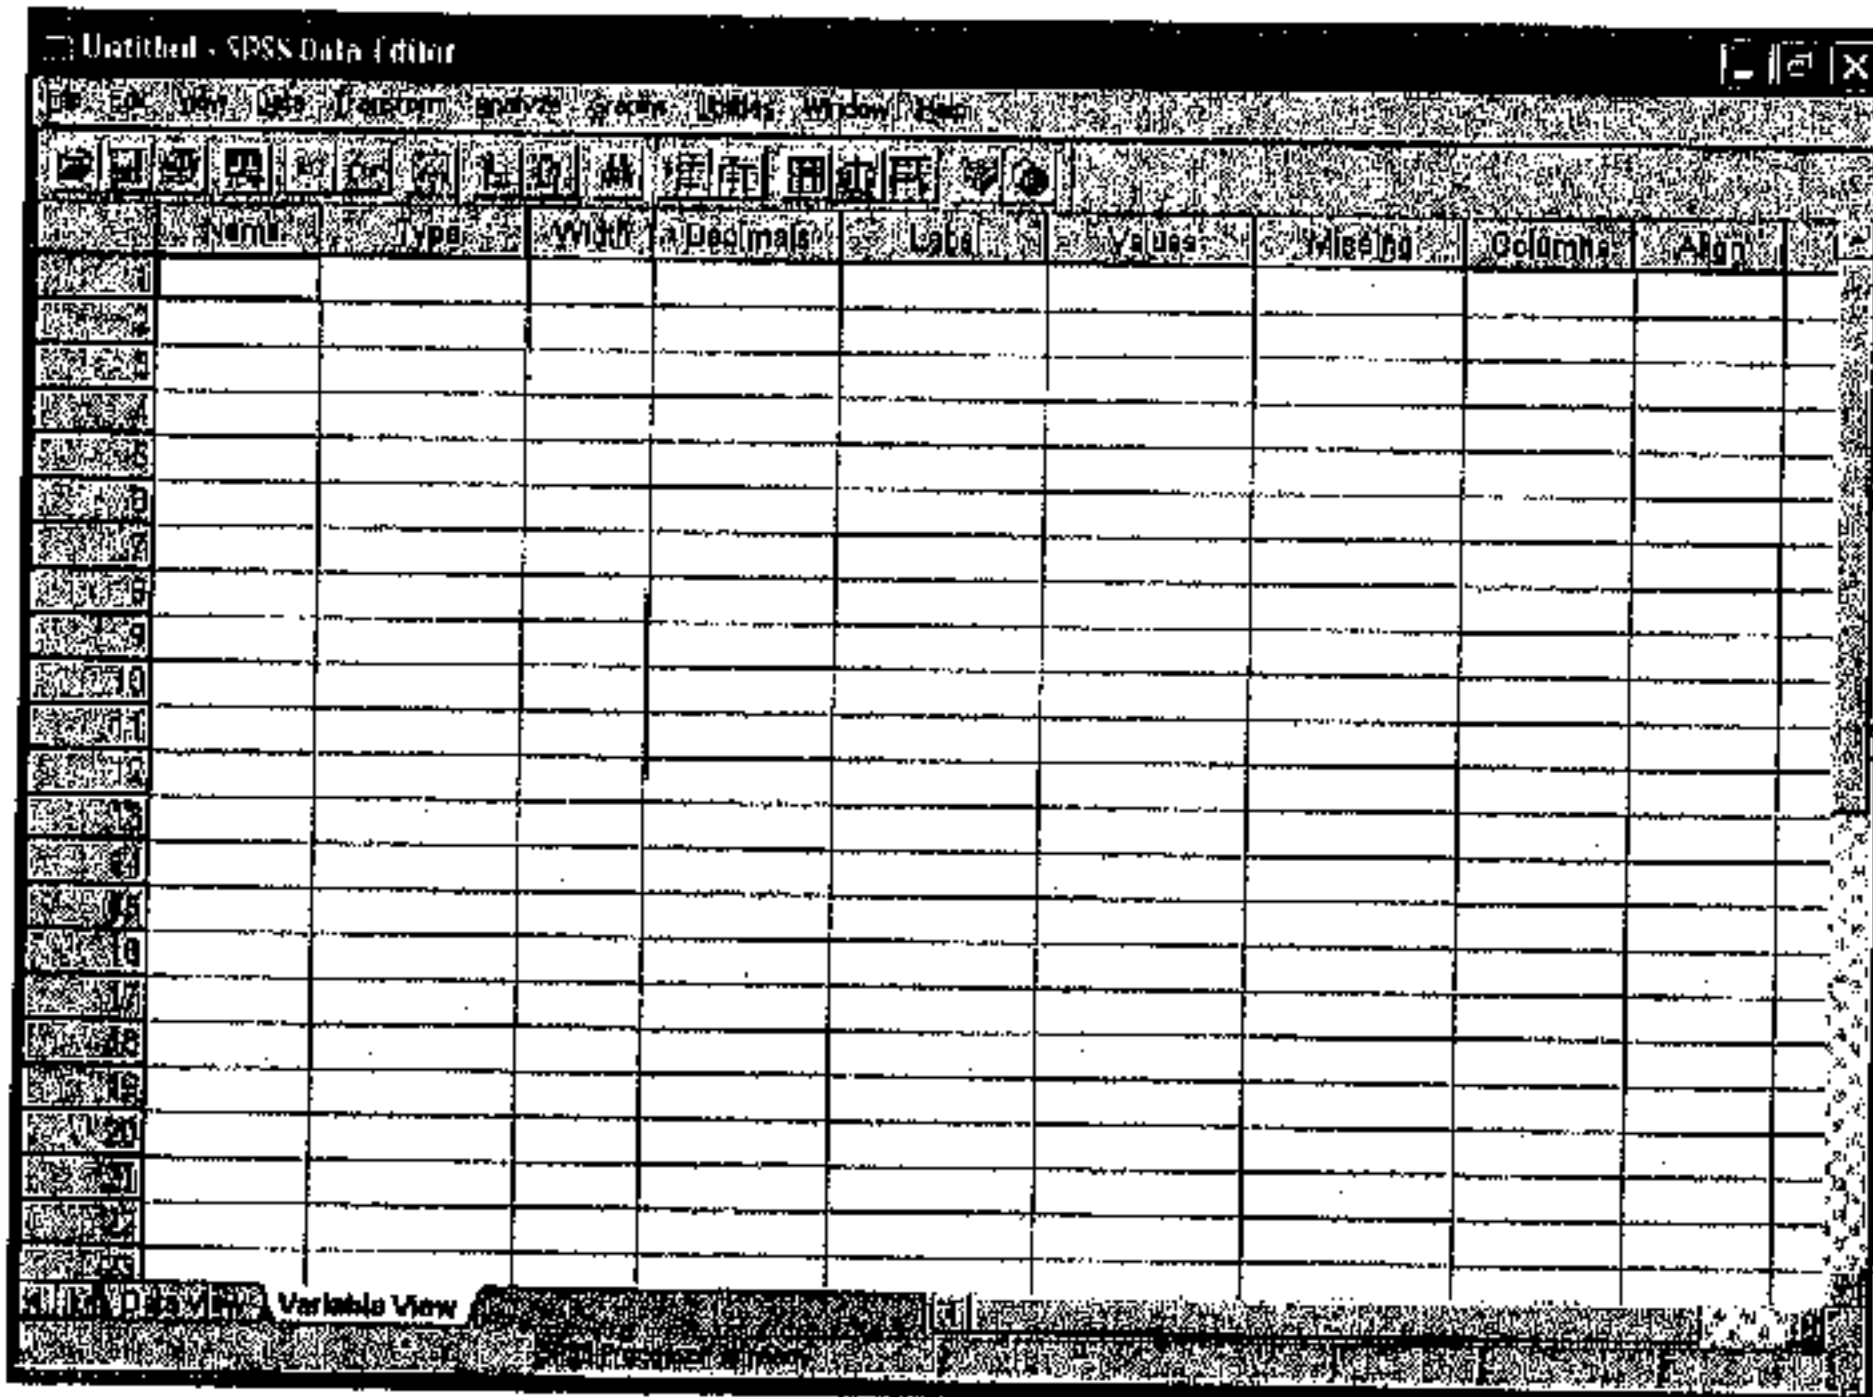 Untitled - SPSS Data Editor
File Edit View Data Transform Analyze Graphs Utilities Window Help
Name Type Width Decimals Label Values Missing Columns Align
1
2
3
4
5
6
7
8
9
10
11
12
13
14
15
16
17
18
19
20
21
22
23
Data View Variable View
SPSS Processor is ready